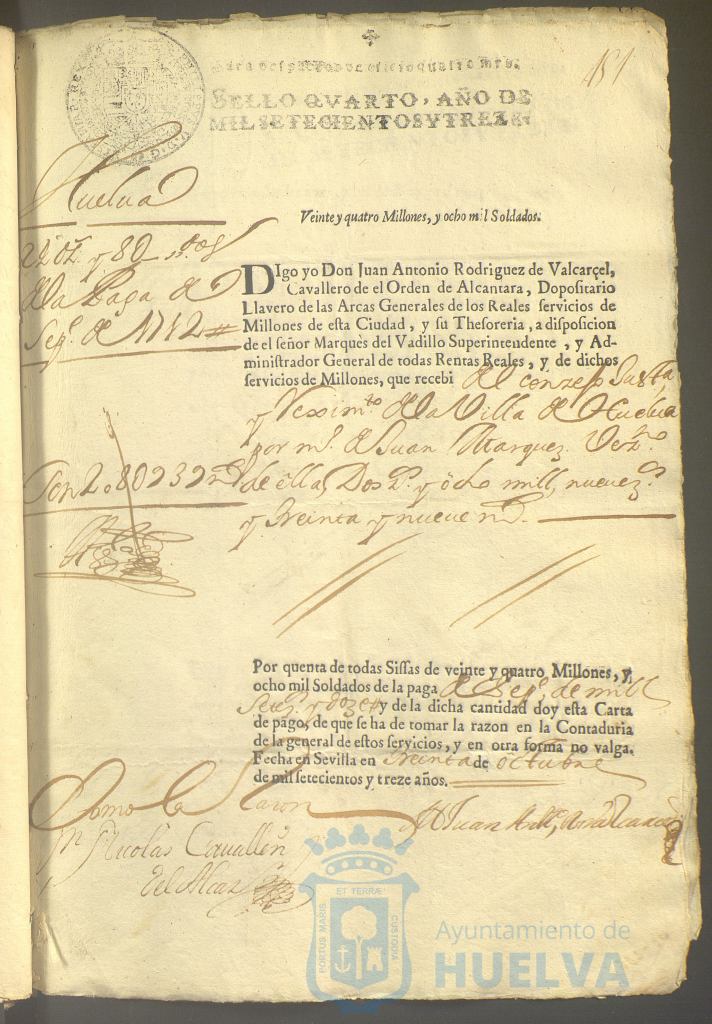 181
SELLO QVARTO, AÑO DE
MIL SETECIENTOS Y TREZE
Huelua
Veinte y quatro Millones, y ocho mil Soldados.
de la Paga de
Sepe. de 1712
DIgo yo Don Juan Antonio Rodriguez de Valcarçel,
Cavallero de el Orden de Alcantara, Dopositario
Llavero de las Arcas Generales de los Reales servicios de
Millones de esta Ciudad, y su Thesoreria, a disposicion
de el señor Marquès del Vadillo Superintendente, y Ad-
ministrador General de todas Rentas Reales, y de dichos
servicios de Millones, que recebi del conzejo Justa,
y Vezimto. de la Villa de Huelua
por m. de Juan Marquez Vezno.
de ella, Dos y ocho mill, nueuez.
y treinta y nueue
Por quenta de todas Sissas de veinte y quatro Millones, y
ocho mil Soldados de la paga de Sepe. de mill
Setez. y doze y de la dicha cantidad doy esta Carta
de pago, de que se ha de tomar la razon en la Contaduria
de la general de estos servicios, y en otra forma no valga.
Fecha en Sevilla en treinta de octubre
de mil setecientos y treze años.
Tomo la Razon
Nicolás Cavallero
del Alcaz
Juan
PORTUS MARIS ET TERRAE CUSTODIA
Ayuntamiento de
HUELVA